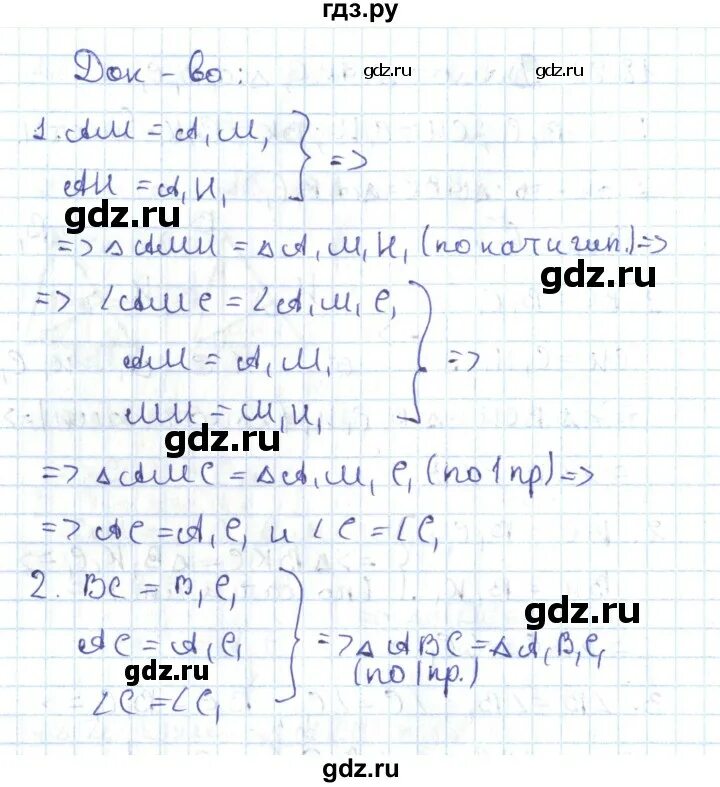 гдз.ру
Док-во:
gdz.ru
gdz.ru
1. AM = A₁M₁
AH = A₁H₁ } =>
gdz.ru
=> △AMH = △A₁M₁H₁ (по кат и гип.) =>
gdz.ru
=> ∠AMC = ∠A₁M₁C₁
AM = A₁M₁
MH = M₁H₁ } =>
gdz.ru
=> △AMC = △A₁M₁C₁ (по 1 пр) =>
=> AC = A₁C₁ и ∠C = ∠C₁
2. BC = B₁C₁
gdz.ru
AC = A₁C₁ } => △ABC = △A₁B₁C₁
gdz.ru
(по 1 пр.)
∠C = ∠C₁
gdz.ru